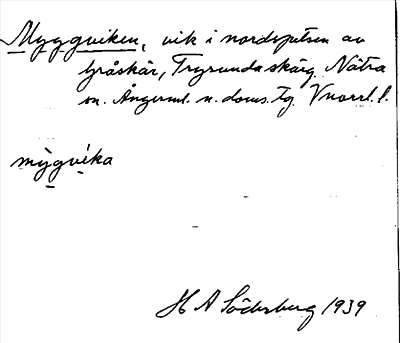 Myggviken, vik i nordspetsen av
Gråskär, Trysunda skärg. Nätra
sn. Ångerml. n. doms. tg. Vnorrl. l.
mỳgvíka
H A Söderberg 1939